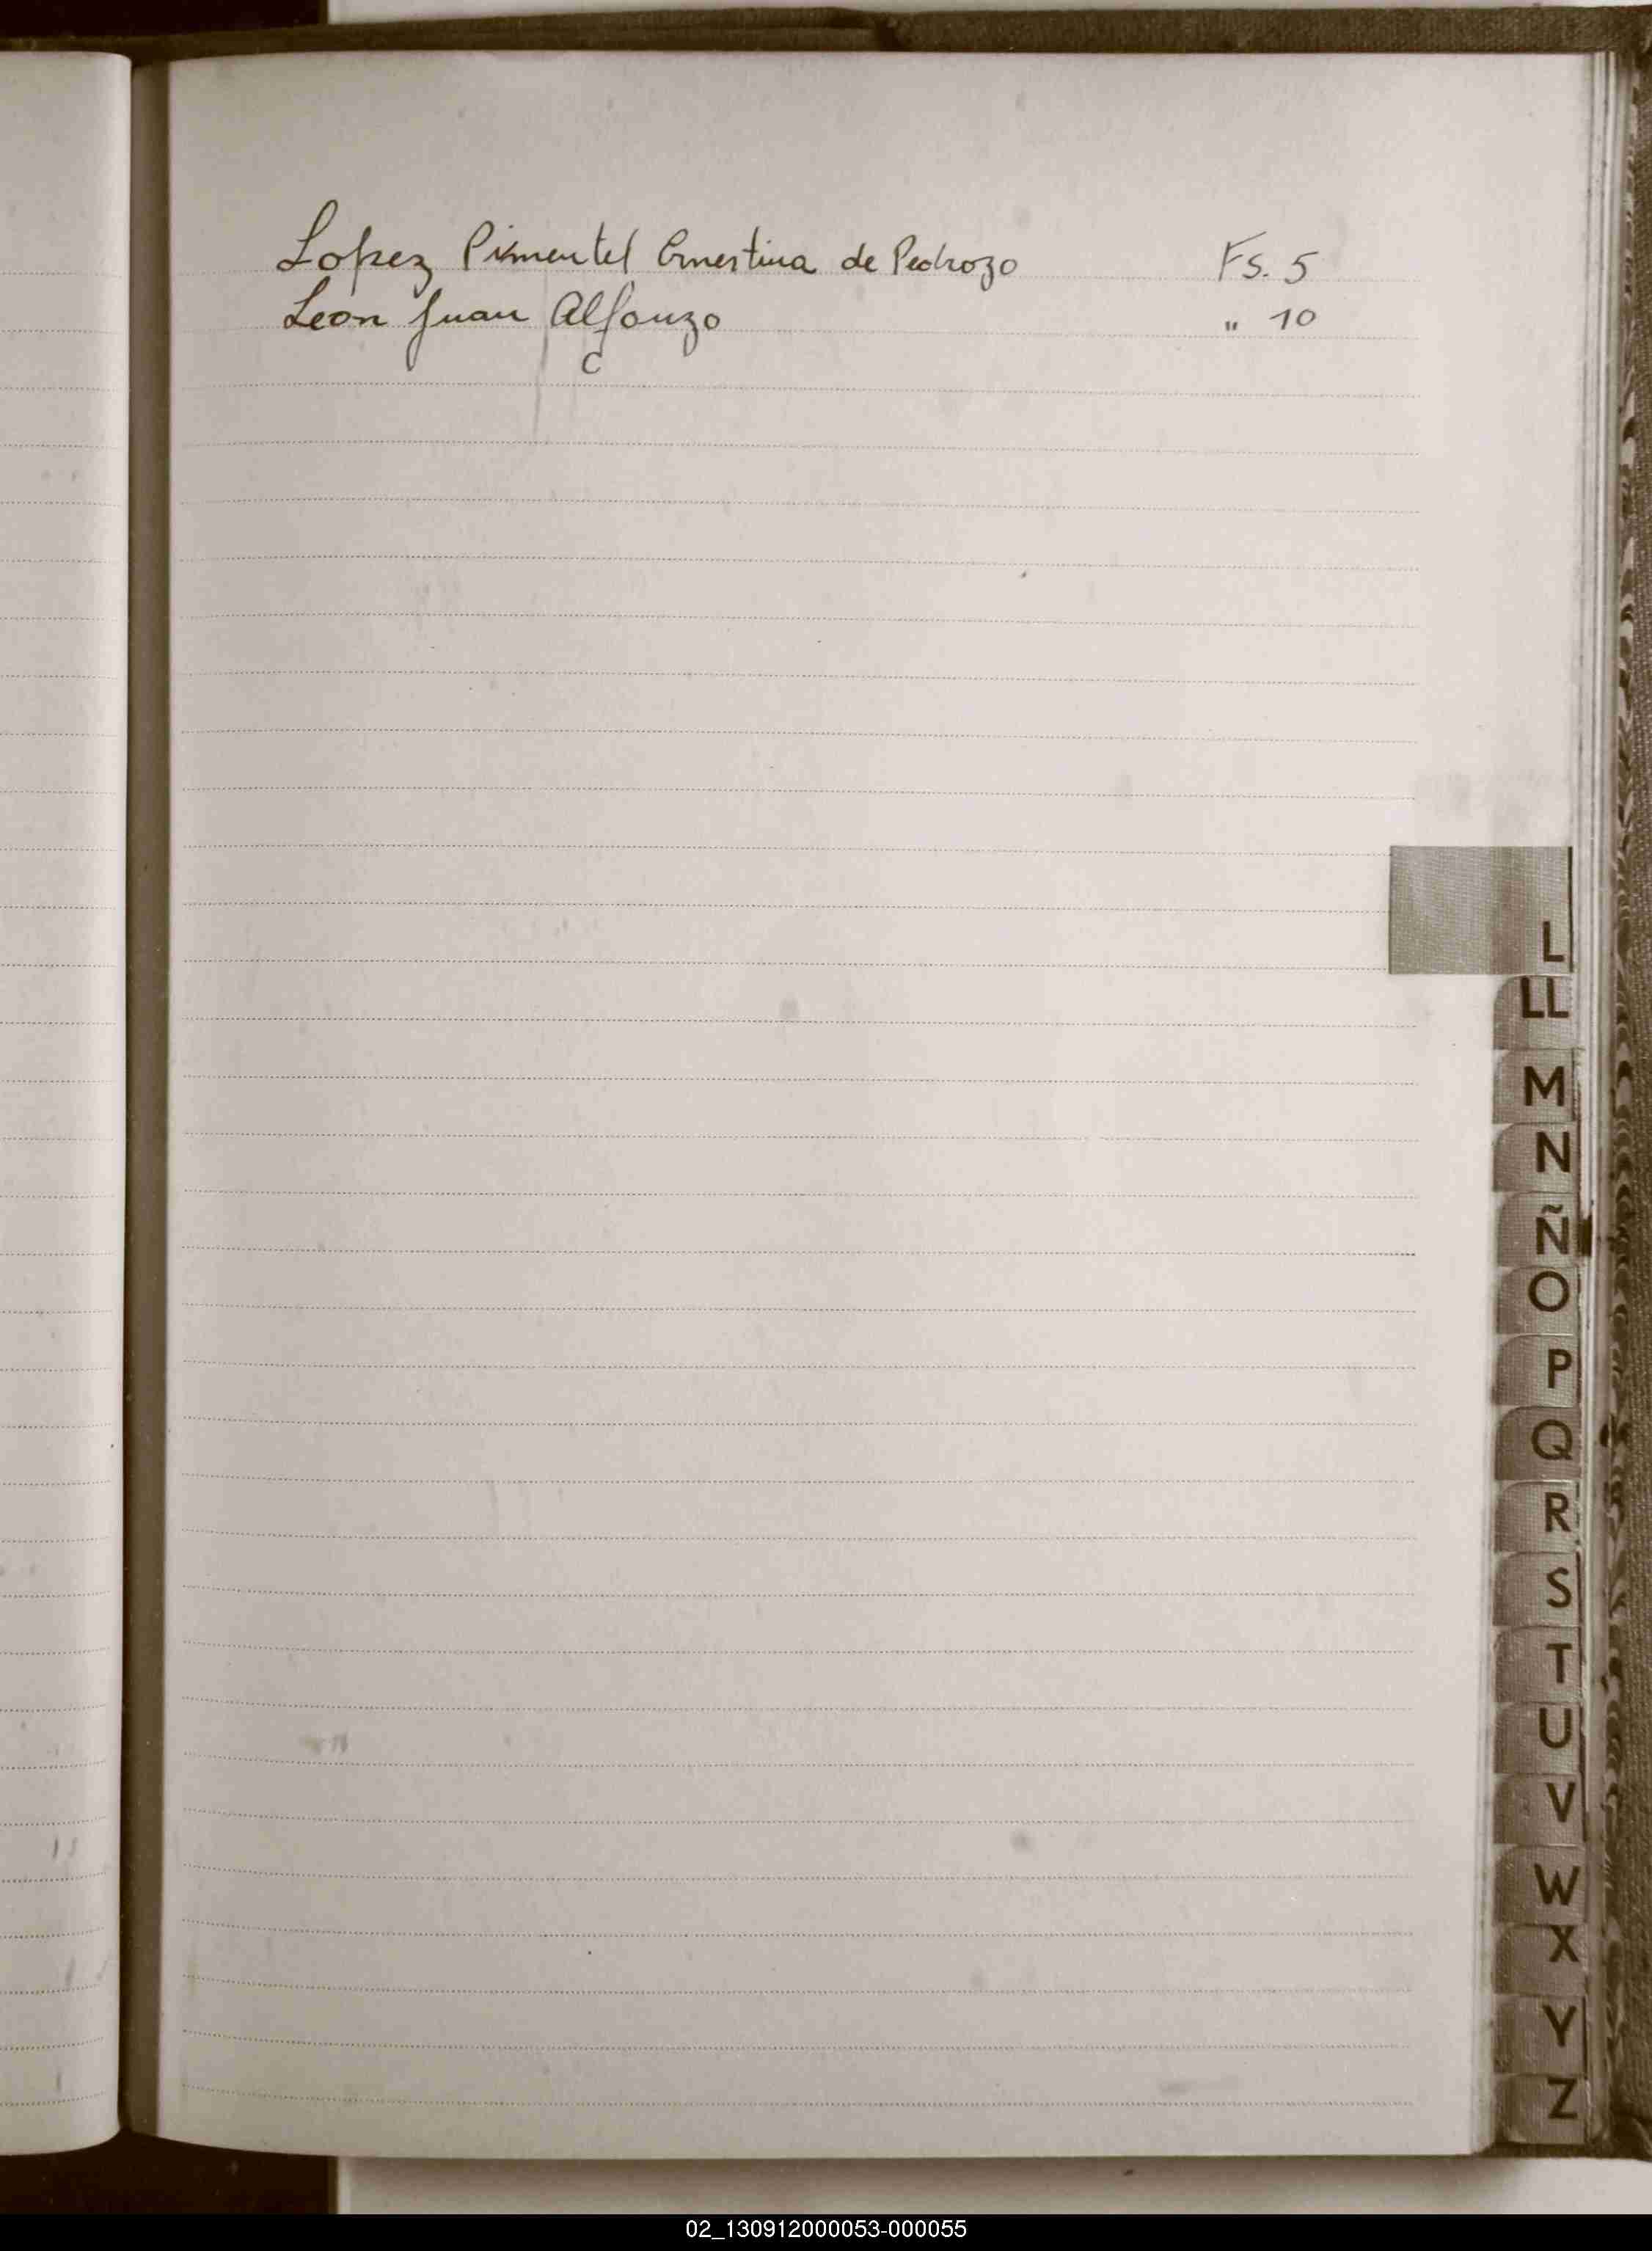 Lopez Pimentel Ernestina de Pedrozo Fs. 5
León Juan Alfonzo " 10
C
L
LL
M
N
Ñ
O
P
Q
R
S
T
U
V
W
X
Y
Z
02_130912000053-000055